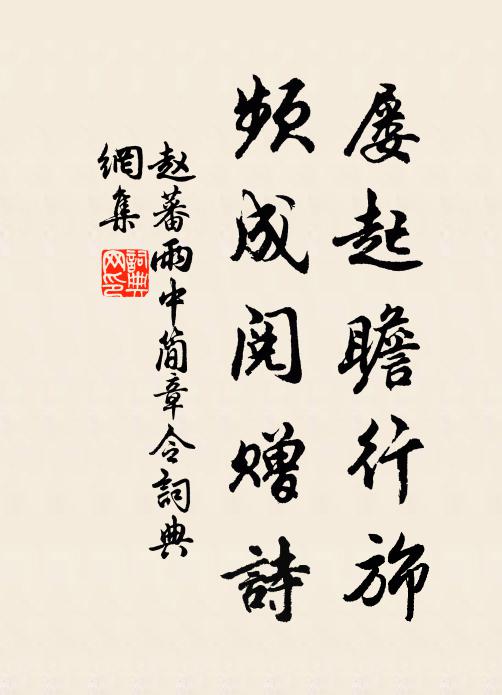 屡起瞻行旆
頻成閱赠詩
赵蕃雨中簡章令詞典
網集
詞典网印